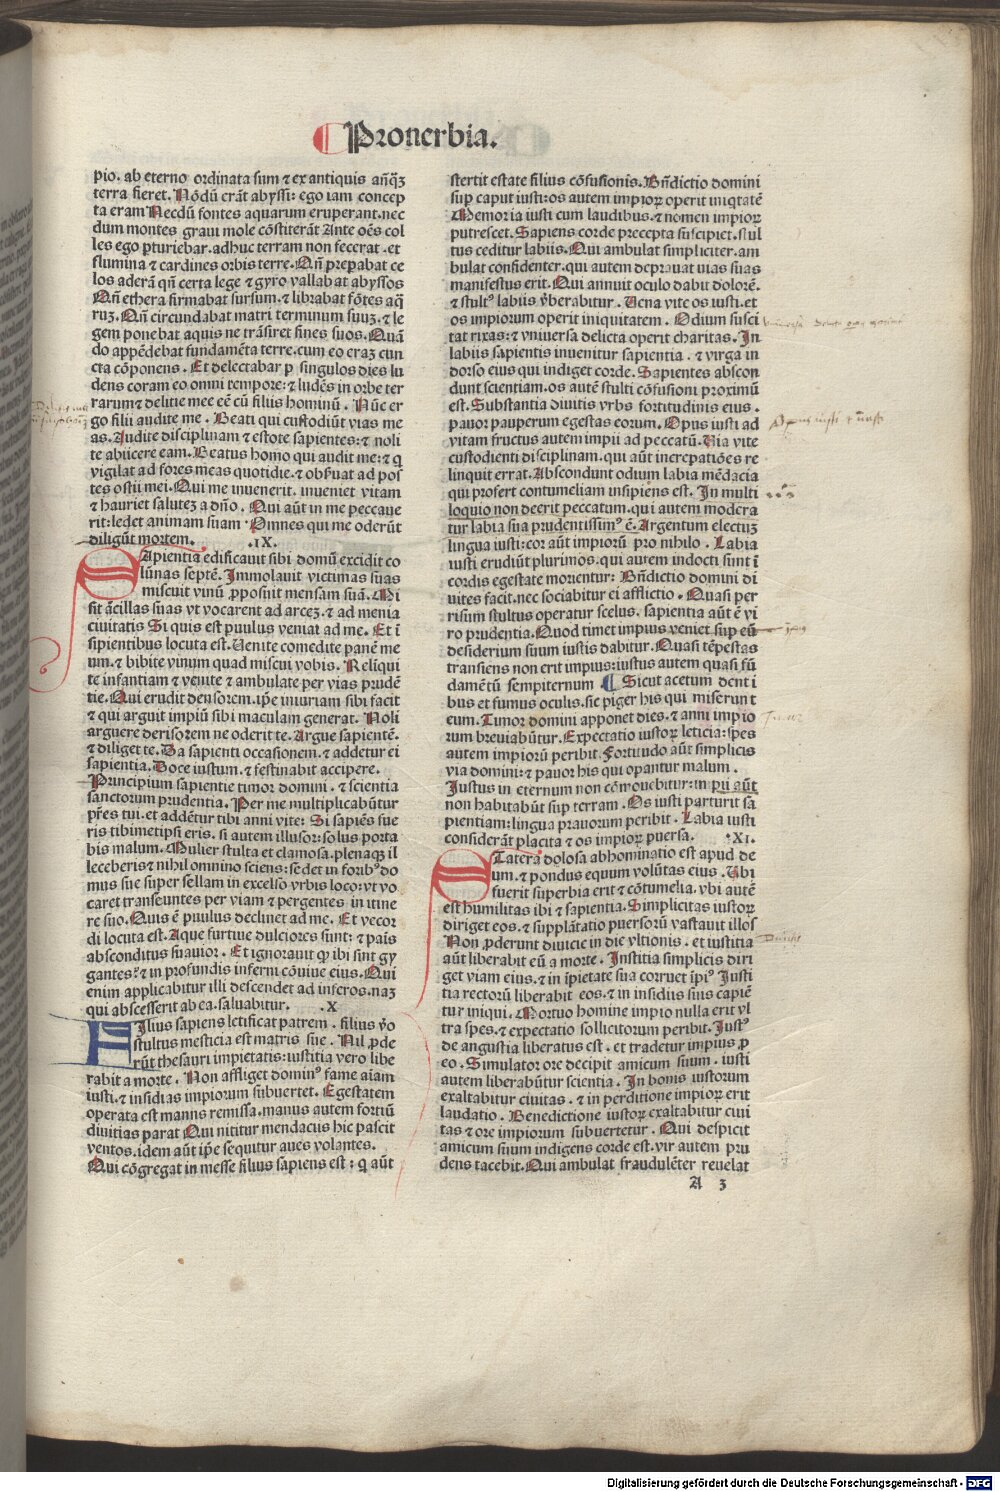 Prouerbia.
pio. ab eterno ordinata sum ⁊ ex antiquis añq̃ȝ
terra fieret. Nõdũ erãt abyssi: ego iam concep
ta eram Necdũ fontes aquarum eruperant. nec
dum montes graui mole cõstiterãt Ante oẽs col
les ego ꝑturiebar. adhuc terram non fecerat. et
flumina ⁊ cardines orbis terre. Qñ prepabat ce
los aderã qñ certa lege ⁊ gyro vallabat abyssos
Qñ ethera firmabat sursum. ⁊ librabat fõtes aq̃
ruȝ. Qñ circundabat mari terminum suuȝ. ⁊ le
gem ponebat aquis ne trãsiret fines suos. Quã
do appẽdebat fundamẽta terre. cum eo eraȝ cun
cta cõponens. Et delectabar ꝑ singulos dies lu
dens coram eo omni tempore: ⁊ ludẽs in orbe ter
rarum: ⁊ delitie mee eẽ cũ filiis hominũ. Nũc er
go filii audite me. Beati qui custodiũt vias me
as. Audite disciplinam ⁊ estote sapientes: ⁊ noli
te abiicere eam. Beatus homo qui audit me: ⁊ q
vigilat ad fores meas quotidie. ⁊ obẜuat ad pos
tes ostii mei. Qui me inuenerit. inueniet vitam
⁊ hauriet saluteȝ a dño. Qui aũt in me peccaue
rit: ledet animam suam. Omnes qui me oderũt
diligũt mortem. .IX.
Sapientia edificauit sibi domũ excidit co
lũnas septẽ. Immolauit victimas suas
miscuit vinũ ꝓposuit mensam suã. Mi
sit ãcillas suas vt vocarent ad arceȝ. ⁊ ad menia
ciuitatis Si quis est puulus veniat ad me. Et ĩ
sipientibus locuta est. Uenite comedite panẽ me
um. ⁊ bibite vinum quod miscui vobis. Reliqui
te infantiam ⁊ venite ⁊ ambulate per vias prudẽ
tie. Qui erudit derisorem. ip̃e iniuriam sibi facit
⁊ qui arguit impiũ sibi maculam generat. Noli
arguere derisorem ne oderit te. Argue sapientẽ.
⁊ diliget te. Da sapienti occasionem. ⁊ addetur ei
sapientia. Doce iustum. ⁊ festinabit accipere.
Principium sapientie timor domini. ⁊ scientia
sanctorum prudentia. Per me multiplicabũtur
p̃res tui. et addẽtur tibi anni vite: Si sapiẽs fue
ris tibimetipsi eris. si autem illusor: solus porta
bis malum. Mulier stulta et clamosa. plenaqȝ il
leceberis ⁊ nihil omnino sciens: sedet in forib⁹ do
mus sue super sellam in excelso vrbis loco: vt vo
caret transeuntes per viam ⁊ pergentes in itine
re suo. Quis ẽ puulus declinet ad me. Et vecor
di locuta est. Aque furtiue dulciores sunt: ⁊ pãis
absconditus suauior. Et ignorauit ꝙ ibi sunt gy
gantes: ⁊ in profundis inferni cõuiue eius. Qui
enim applicabitur illi descendet ad inferos. naȝ
qui abscesserit ab ea. saluabitur. .X
Filius sapiens letificat patrem. filius ṽo
stultus mesticia est matris sue. Nil ꝓde
rũt thesauri impietatis: iustitia vero libe
rabit a morte. Non affliget domin⁹ fame aĩam
iusti. ⁊ insidias impiorum subuertet. Egestatem
operata est manus remissa. manus autem fortiũ
diuitias parat Qui nititur mendaciis hic pascit
ventos. idem aũt ip̃e sequitur aues volantes.
Qui cõgregat in messe filius sapiens est: q aũt
stertit estate filius cõfusionis. Bñdictio domini
suꝑ caput iusti: os autem impioꝝ operit iniq̃tatẽ
Memoria iusti cum laudibus. ⁊ nomen impioꝝ
putrescet. Sapiens corde precepta suscipiet. stul
tus ceditur labiis. Qui ambulat simpliciter. am
bulat confidenter. qui autem deprauat uias suas
manifestus erit. Qui annuit oculo dabit dolorẽ.
⁊ stult⁹ labiis ṽberabitur. Uena vite os iusti. et
os impiorum operit iniquitatem. Odium susci
tat rixas: ⁊ vniuersa delicta operit charitas. In
labiis sapientis inuenitur sapientia. ⁊ virga in
dorso eius qui indiget corde. Sapientes abscon
dunt scientiam. os autẽ stulti cõfusioni proximũ
est. Substantia diuitis vrbs fortitudinis eius.
pauor pauperum egestas eorum. Opus iusti ad
vitam fructus autem impii ad peccatũ. Uia vite
custodienti disciplinam. qui aũt increpatiões re
linquit errat. Abscondunt odium labia mẽdacia
qui profert contumeliam insipiens est. In multi
loquio non deerit peccatum. qui autem modera
tur labia sua prudentissim⁹ ẽ. Argentum electuȝ
lingua iusti: cor aũt impiorũ pro nihilo. Labia
iusti erudiũt plurimos. qui autem indocti sunt ĩ
cordis egestate morientur: Bñdictio domini di
uites facit. nec sociabitur ei afflictio. Quasi per
risum stultus operatur scelus. sapientia aũt ẽ vi
ro prudentia. Quod timet impius veniet suꝑ eũ
desiderium suum iustis dabitur. Quasi tẽpestas
transiens non erit impius: iustus autem quasi fũ
damẽtũ sempiternum Sicut acetum dent i
bus et fumus oculis. sic piger his qui miserun t
eum. Timor domini apponet dies. ⁊ anni impio
rum breuiabũtur. Expectatio iustoꝝ leticia: spes
autem impiorũ peribit. Fortitudo aũt simplicis
via domini: ⁊ pauor his qui opantur malum.
Iustus in eternum non cõmouebitur: im pii aũt
non habitabũt suꝑ terram. Os iusti parturit sa
pientiam: lingua prauorum peribit. Labia iusti
considerãt placita ⁊ os impioꝝ puersa. .XI.
Statera dolosa abhominatio est apud de
um. ⁊ pondus equum volũtas eius. Ubi
fuerit superbia erit ⁊ cõtumelia. vbi autẽ
est humilitas ibi ⁊ sapientia. Simplicitas iustoꝝ
diriget eos. ⁊ supplãtatio puersorũ vastauit illos
Non ꝓderunt diuicie in die vltionis. et iustitia
aũt liberabit eũ a morte. Iustitia simplicis diri
get viam eius. ⁊ in ĩpietate sua corruet ĩpi⁹ Iusti
tia rectorũ liberabit eos. ⁊ in insidiis suis capiẽ
tur iniqui. Mortuo homine impio nulla erit vl
tra spes. ⁊ expectatio sollicitorum peribit. Iust⁹
de angustia liberatus est. et tradetur impius ꝓ
eo. Simulator ore decipit amicum suum. iusti
autem liberabũtur scientia. In bonis iustorum
exaltabitur ciuitas. ⁊ in perditione impioꝝ erit
laudatio. Benedictione iustoꝝ exaltabitur ciui
tas ⁊ ore impiorum subuertetur. Qui despicit
amicum suum indigens corde est. vir autem pru
dens tacebit. Qui ambulat fraudulẽter reuelat
A 3
Digitalisierung gefördert durch die Deutsche Forschungsgemeinschaft - DFG